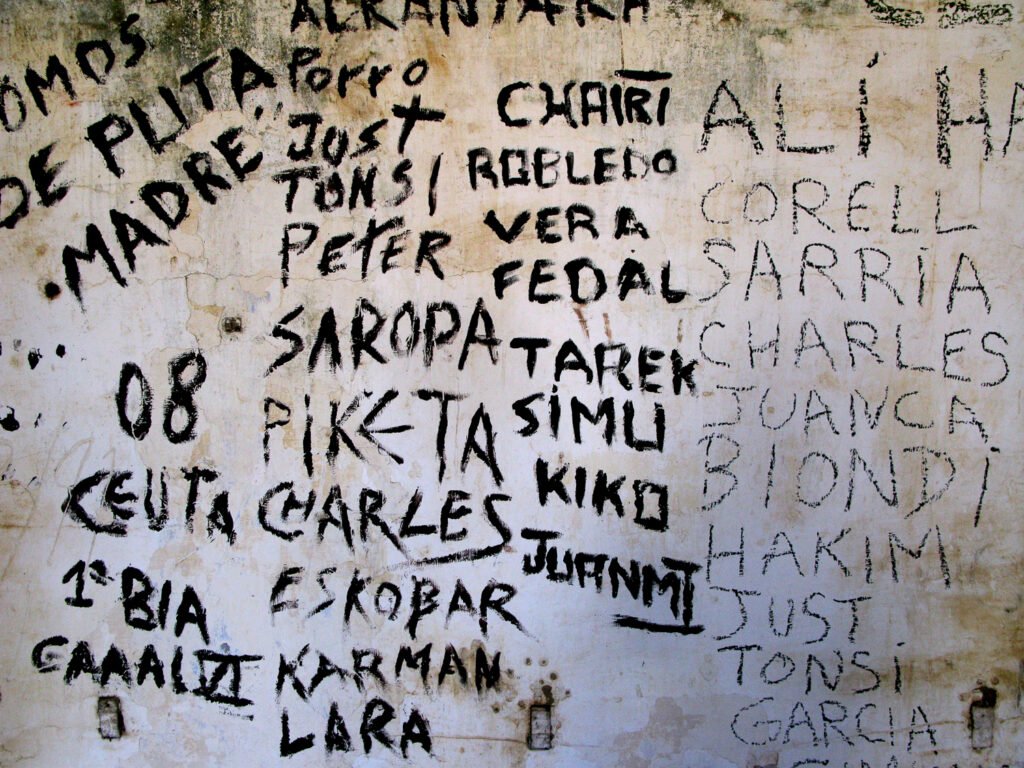 OMOS
DE PUTA
MADRE
08
CEUTA
1ª BIA
GAAAL VI
ALKANTARA
Porro
JUST
TONSI
PETER
SAROPA
PIKETA
CHARLES
ESKOBAR
KARMAN
LARA
CHAIRI
ROBLEDO
VERA
FEDAL
TAREK
SIMU
KIKO
JUANMI
ALÍ HA
CORELL
SARRIA
CHARLES
JUANCA
BIONDI
HAKIM
JUST
TONSI
GARCIA